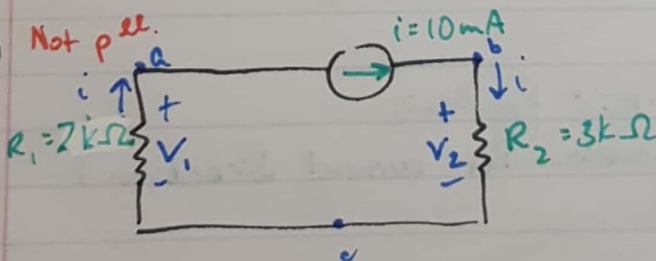 Not pll.
i = 10mA
a
b
i
i
+
+
R₁ = 2kΩ
V₁
V₂
R₂ = 3kΩ
-
-